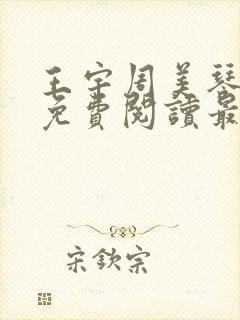 王宇周美琴
免費閱讀最
宋欽宗